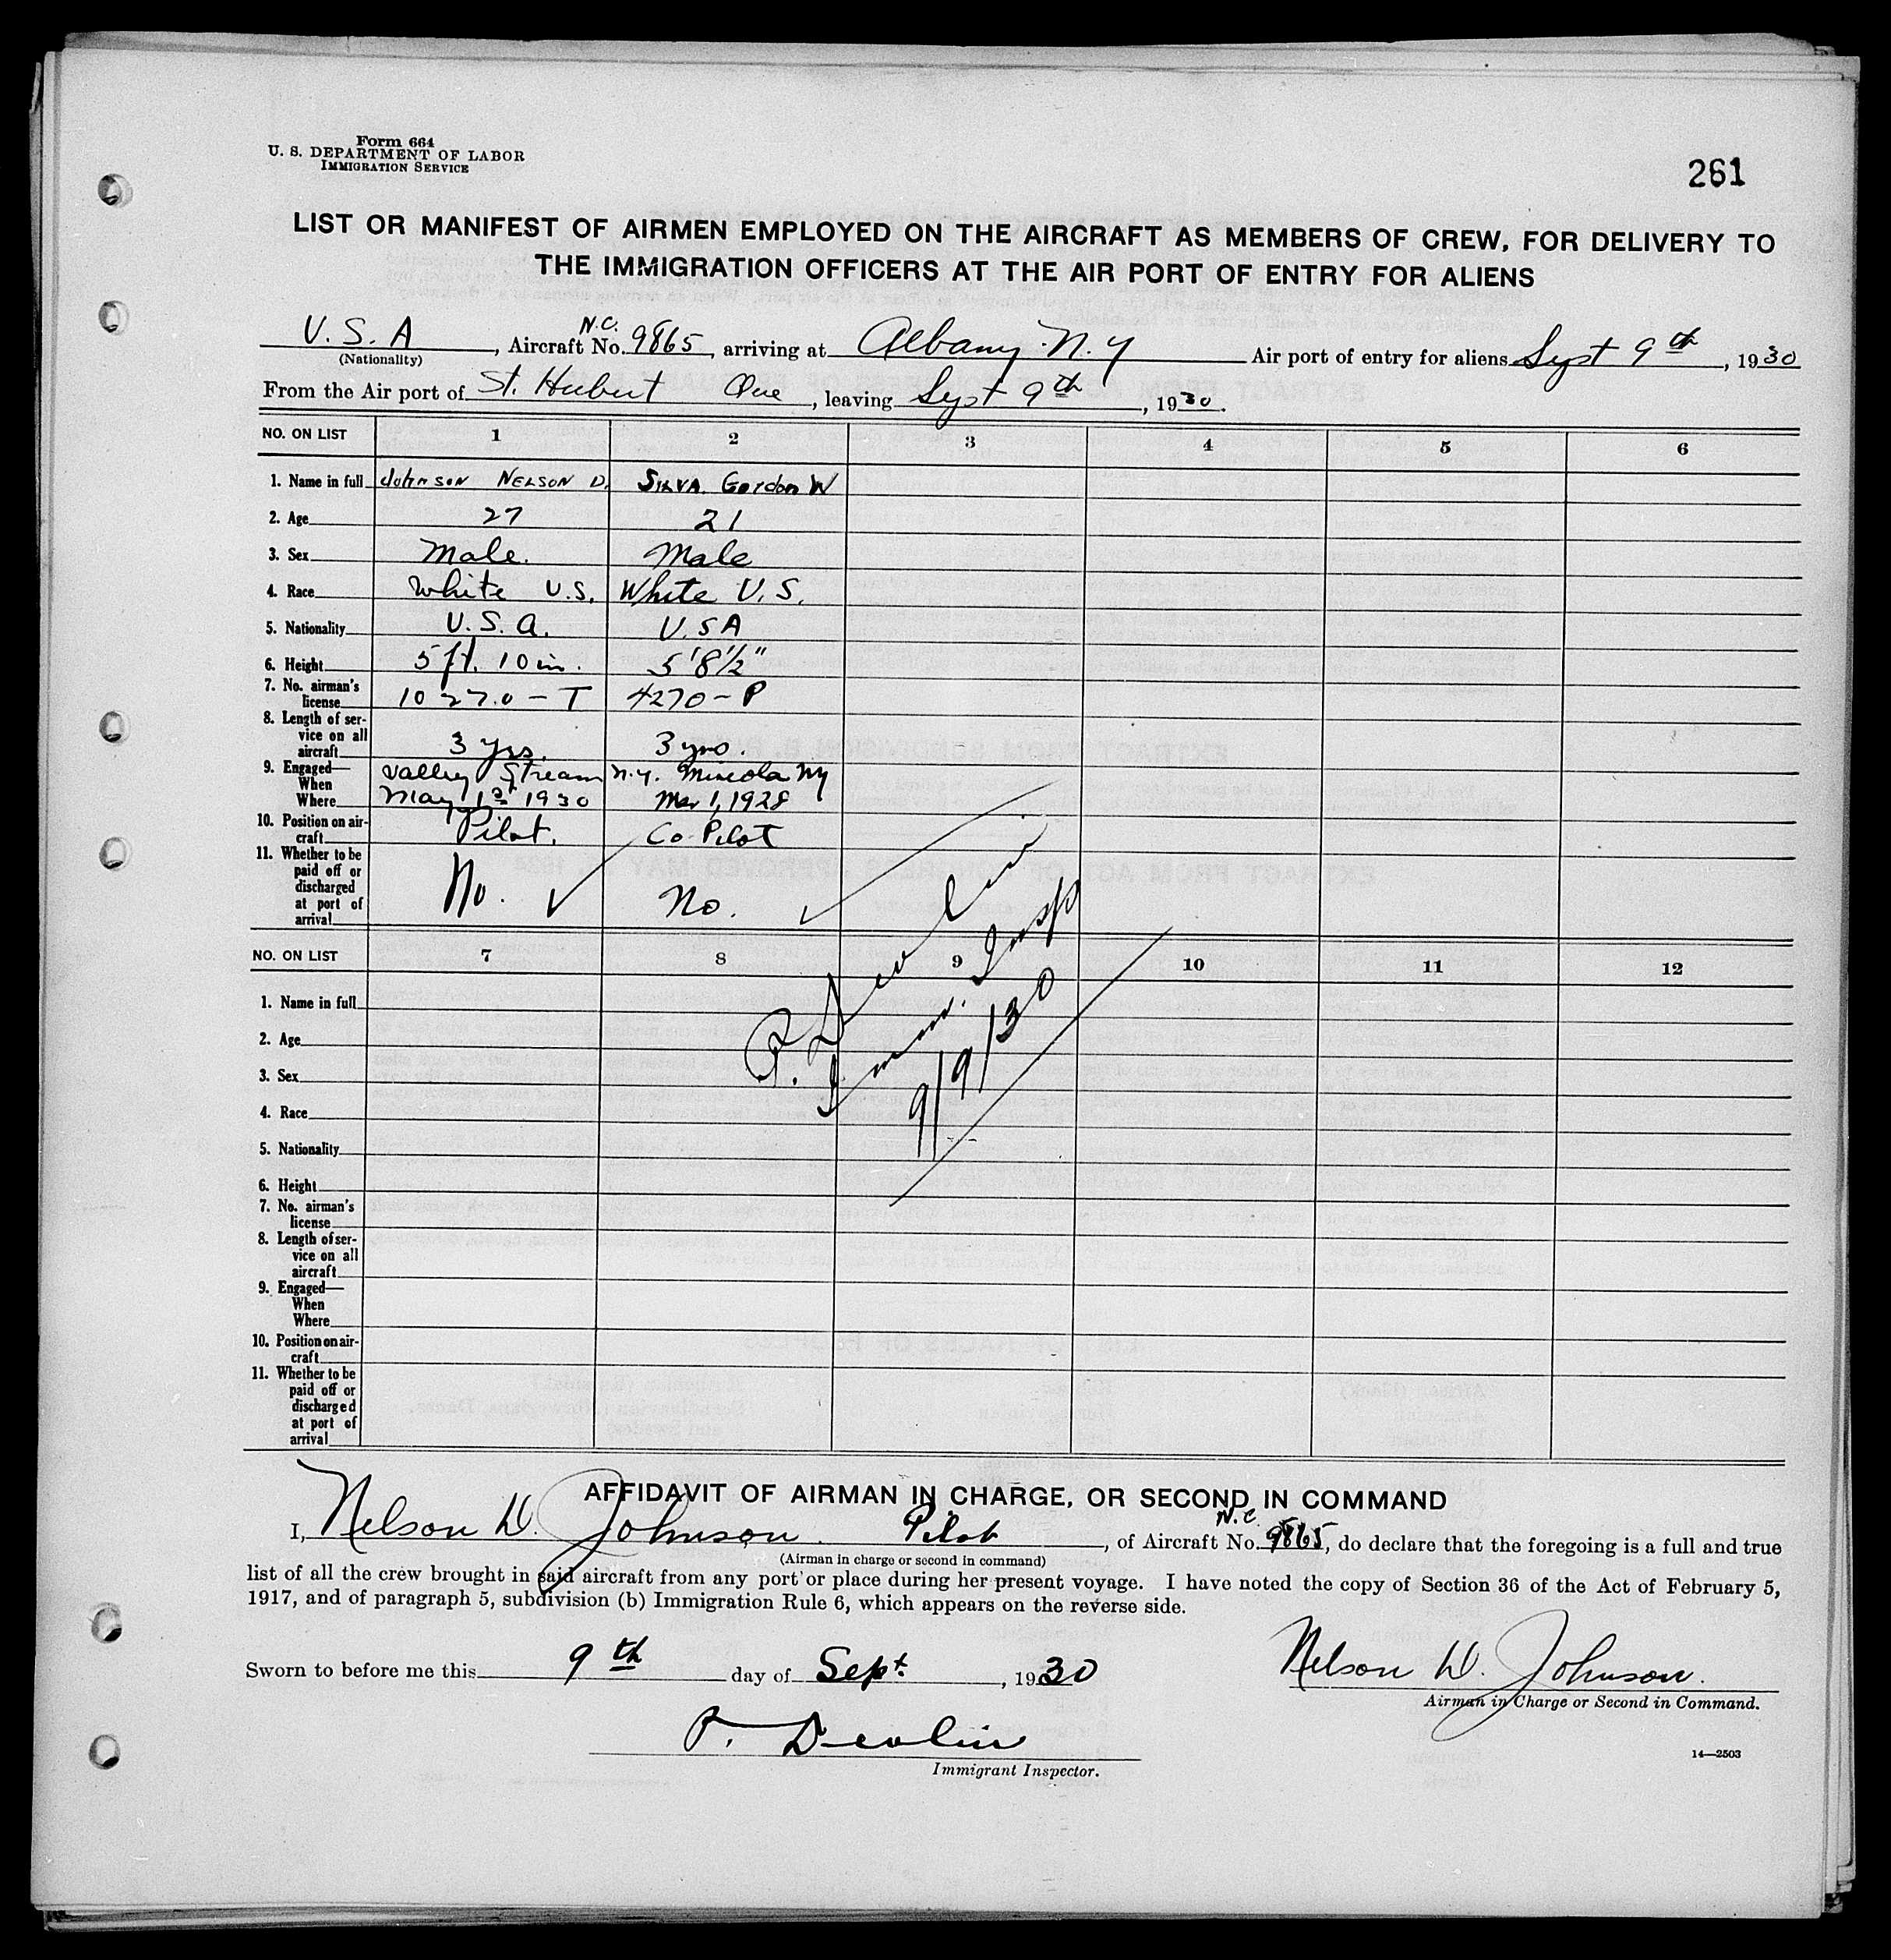 Form 664
U. S. DEPARTMENT OF LABOR
IMMIGRATION SERVICE
261
LIST OR MANIFEST OF AIRMEN EMPLOYED ON THE AIRCRAFT AS MEMBERS OF CREW, FOR DELIVERY TO
THE IMMIGRATION OFFICERS AT THE AIR PORT OF ENTRY FOR ALIENS
U. S. A, Aircraft No. N.C. 9865, arriving at Albany N. Y Air port of entry for aliens Sept 9th, 1930
(Nationality)
From the Air port of St. Hubert Que, leaving Sept 9th, 1930.
NO. ON LIST 1 2 3 4 5 6
1. Name in full Johnson Nelson D. Silva. Gordon W
2. Age 27 21
3. Sex Male. Male
4. Race White U.S. White U.S.
5. Nationality U.S.A. U.S A
6. Height 5 ft. 10 in. 5'8½"
7. No. airman's license 10270-T 4270-P
8. Length of service on all aircraft 3 yrs. 3 yrs.
9. Engaged— When Where Valley Stream N.Y. Mineola NY
May 1st 1930 Mar 1, 1928
10. Position on aircraft Pilot. Co-Pilot
11. Whether to be paid off or discharged at port of arrival No. No.
P. Devlin
Immi. Insp
9/9/30
NO. ON LIST 7 8 9 10 11 12
1. Name in full
2. Age
3. Sex
4. Race
5. Nationality
6. Height
7. No. airman's license
8. Length of service on all aircraft
9. Engaged— When Where
10. Position on aircraft
11. Whether to be paid off or discharged at port of arrival
AFFIDAVIT OF AIRMAN IN CHARGE, OR SECOND IN COMMAND
I, Nelson D. Johnson. Pilot, of Aircraft No. N.C. 9865, do declare that the foregoing is a full and true
(Airman in charge or second in command)
list of all the crew brought in said aircraft from any port or place during her present voyage. I have noted the copy of Section 36 of the Act of February 5,
1917, and of paragraph 5, subdivision (b) Immigration Rule 6, which appears on the reverse side.
Sworn to before me this 9th day of Sept., 1930
Nelson D. Johnson.
Airman in Charge or Second in Command.
P. Devlin
Immigrant Inspector.
14—2503